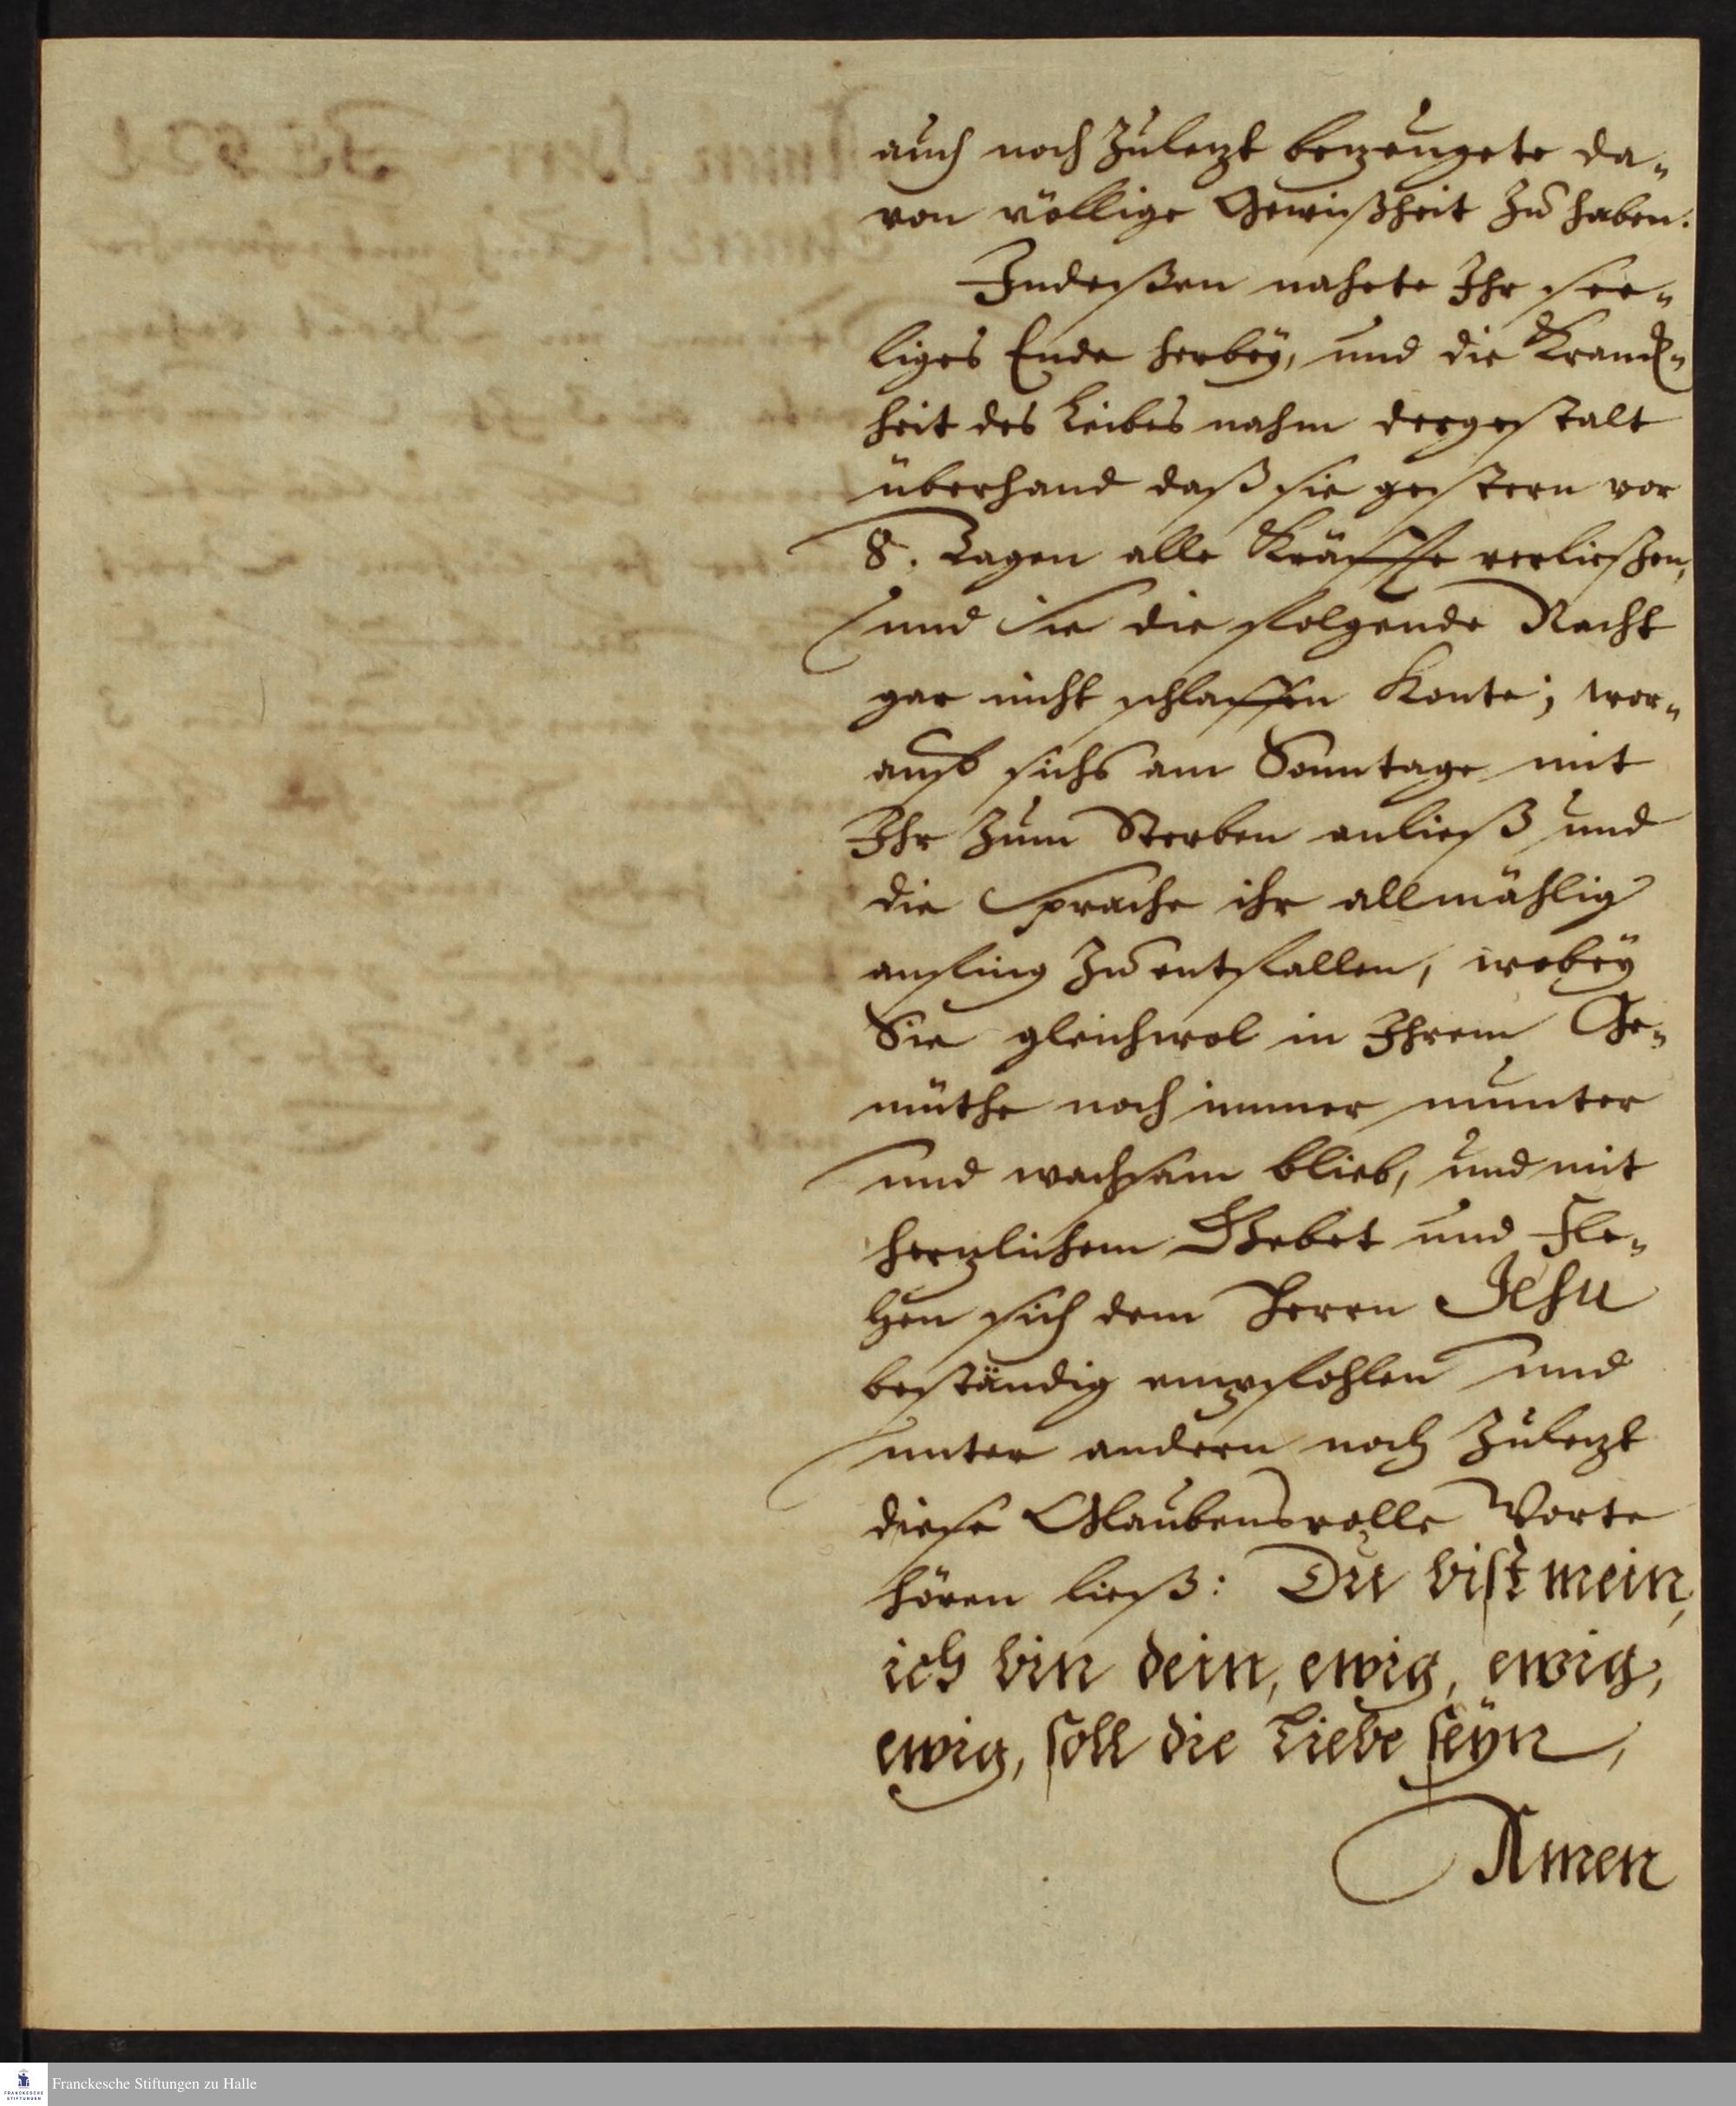 auch noch Zuletzt bezeugete da-
von völlige Gewißheit Zu haben.
Indeßen nahete Ihr see-
liges Ende herbey, und die Kranck-
heit des Leibes nahm dergestalt
überhand daß sie gestern vor
8. Tagen alle Kräffte verließen,
und Sie die folgende Nacht
gar nicht schlaffen Konte; wor-
auf sichs am Sonntage mit
Ihr Zum Sterben anließ und
die Sprache ihr allmählig
anfing Zu entfallen, wobey
Sie gleichwol in Ihrem Ge-
müthe noch immer munter
und wachsam blieb, und mit
hertzlichem Gebet und Fle-
hen sich dem Herrn JEsu
beständig empfohlen und
unter andern noch Zuletzt
diese Glaubensvolle Worte
hören ließ: Du bist mein,
ich bin dein, ewig, ewig,
ewig, soll die Liebe seyn,
Amen
Franckesche Stiftungen zu Halle